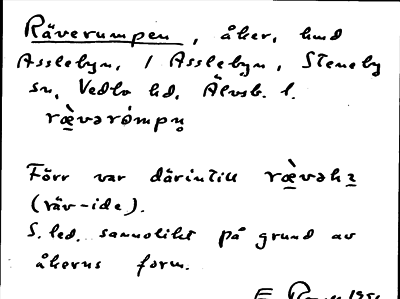 Räverumpen, åker, hmd
Asslebyn, 1 Asslebyn, Steneby
sn, Vedbo hd, Älvsb. l.
ræ̀vərómpn̥
Förr var därintill ræ̀vəhɩ
(räv-ide).
S. led. sannolikt på grund av
åkerns form.